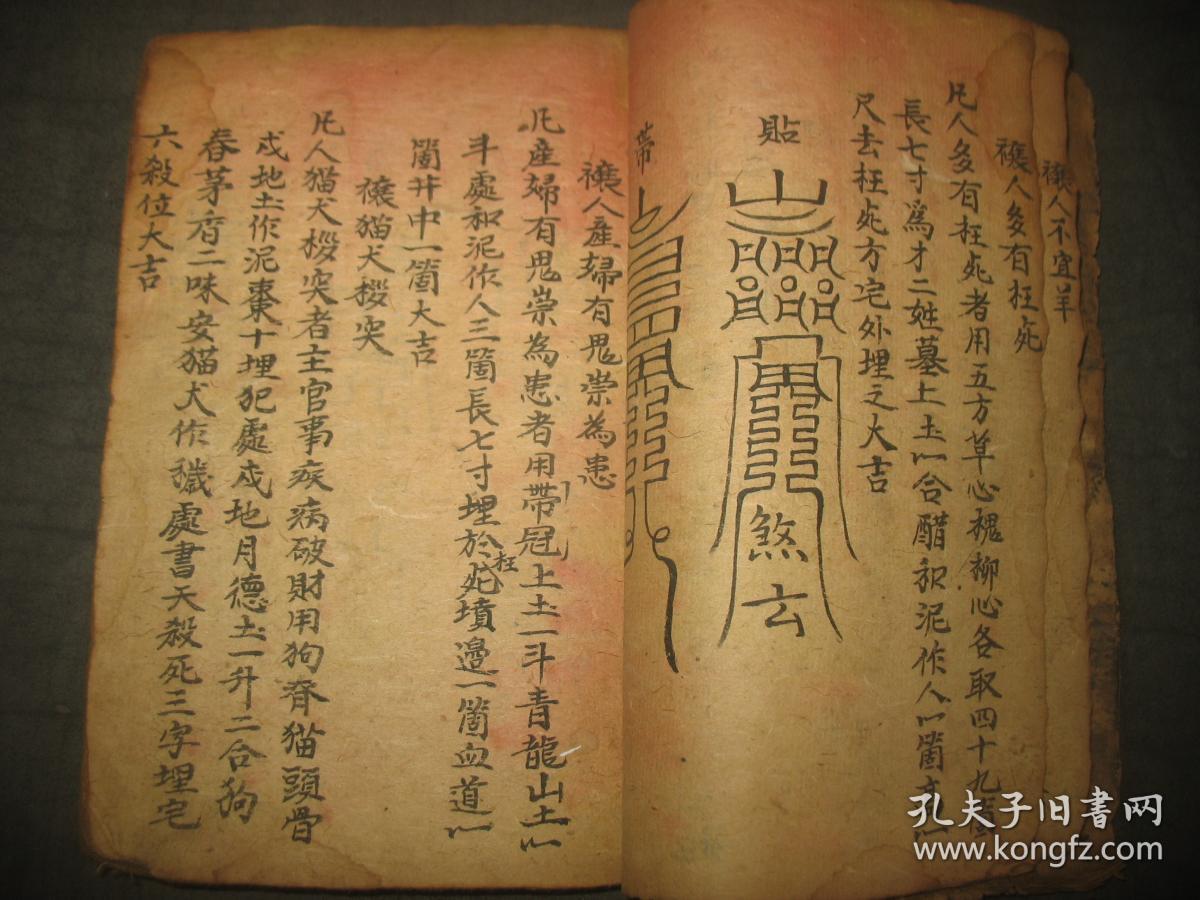 禳人不宜羊
禳人多有枉死
凡人多有枉死者用五方草心槐柳心各取四十九
長七寸為才二姓墓上土合醋和泥作人箇高
尺去枉死方宅外埋之大吉
貼
煞去
帶
禳人産婦有鬼祟為患
凡産婦有鬼祟為患者用帶冠上土一斗青龍山土
斗處和泥作人三箇長七寸埋於枉死墳邊一箇血道
箇井中一箇大吉
禳猫犬拶突
凡人猫犬拶突者主官事疾病破財用狗脊猫頭骨
戍地土作泥棗十埋犯處戍地月德土一升二合狗
春茅香二味安猫犬作穢處書天殺死三字埋宅
六殺位大吉
孔夫子旧書网
www.kongfz.com